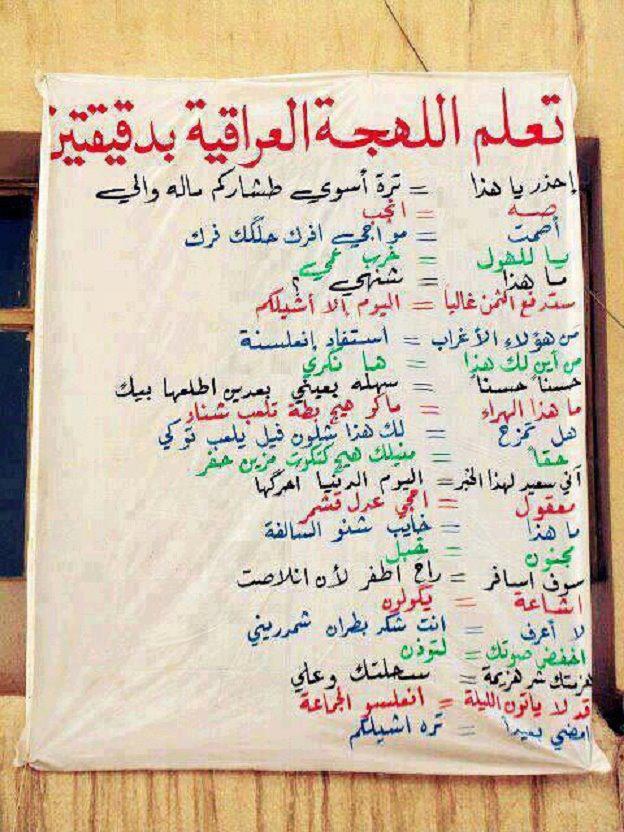 تعلم اللهجة العراقية بدقيقتين
إحذر يا هذا = ترة أسوي طشاركم ماله والي
صه = انجب
أصمت = مو اجي افرك حلگك فرك
يا للهول = خرب عمي
ما هذا = شنهي ؟
ستدفع الثمن غالياً = اليوم إلا أشيلكم
من هؤلاء الأغراب = استفاد إنعلسنة
من أين لك هذا = ها نكري
حسناً حسناً = سهله بعيني بعدين اطلعها بيك
ما هذا الهراء = ماكو هيج بطة تلعب شناو
هل تمزح = لك هذا شلون فيل يلعب توكي
حقاً = منيلك هيج كتكوت مزين حفر
آني سعيد لهذا الخبر = اليوم الدنيا احرگها
معقول = احجي عدل قشمر
ما هذا = خايب شنو السالفة
مجنون = خبل
سوف اسافر = راح اطفر لأن انلاصت
اشاعة = يگولون
لا أعرف = انت شكر بطران شمدريني
اخفض صوتك = لتوذن
هزمتك شر هزيمة = سحلتك وعلي
قد لا ياتون الليلة = انعلسو الجماعة
امضي بعيدا = تره اشيلكم